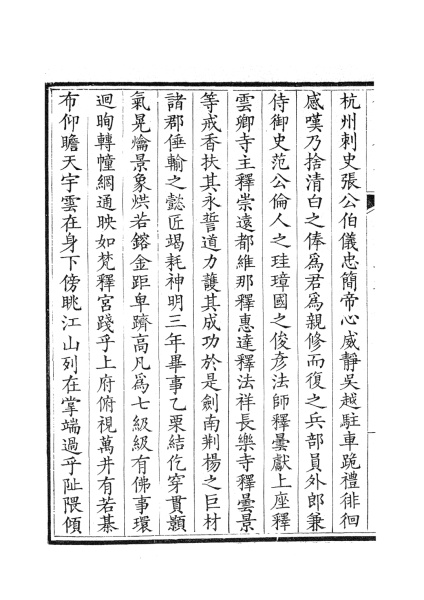 杭州刺史張公伯儀忠簡帝心威靜吳越駐車跪禮徘徊
感嘆乃捨清白之俸爲君爲親修而復之兵部員外郎兼
侍御史范公倫人之珪璋國之俊彥法師釋曇獻上座釋
雲卿寺主釋崇遠都維那釋惠達釋法祥長樂寺釋曇景
等戒香扶其永誓道力護其成功於是劍南荆楊之巨材
諸郡倕輸之懿匠竭耗神明三年畢事乙栗結仡穿貫顥
氣晃爚景象烘若鎔金距卑躋高凡爲七級級有佛事環
迴眴轉幢網通映如梵釋宮踐乎上府俯視萬井有若棊
布仰瞻天宇雲在身下傍眺江山列在掌端過乎阯隈傾